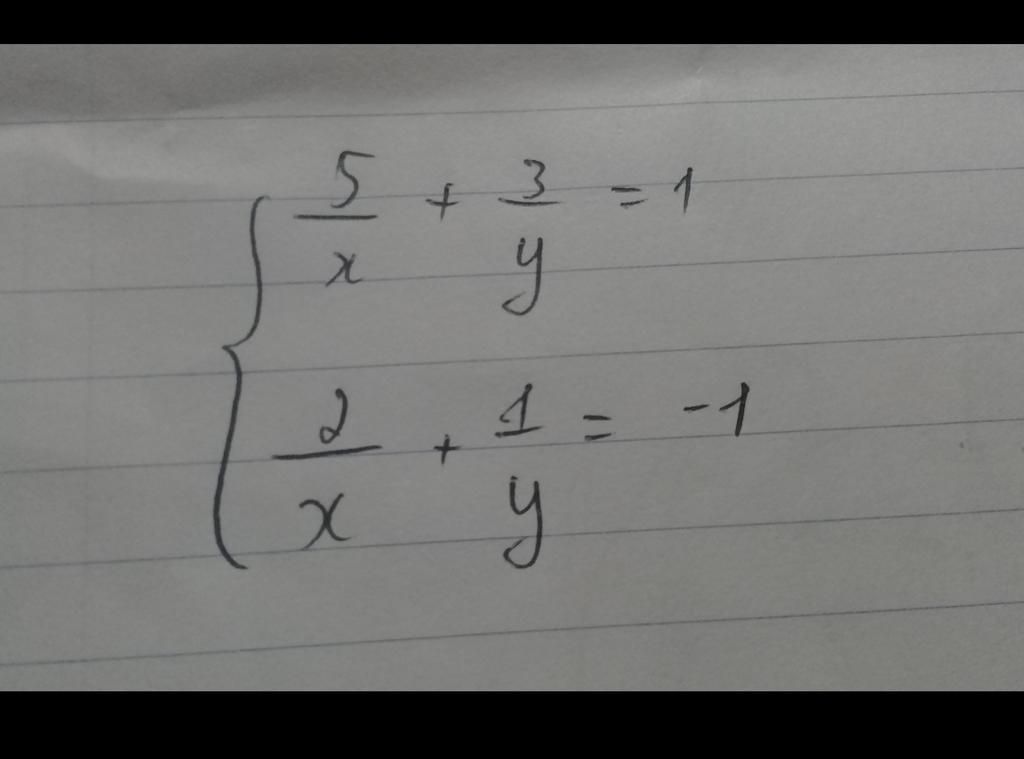 5/x + 3/y = 1
2/x + 1/y = -1